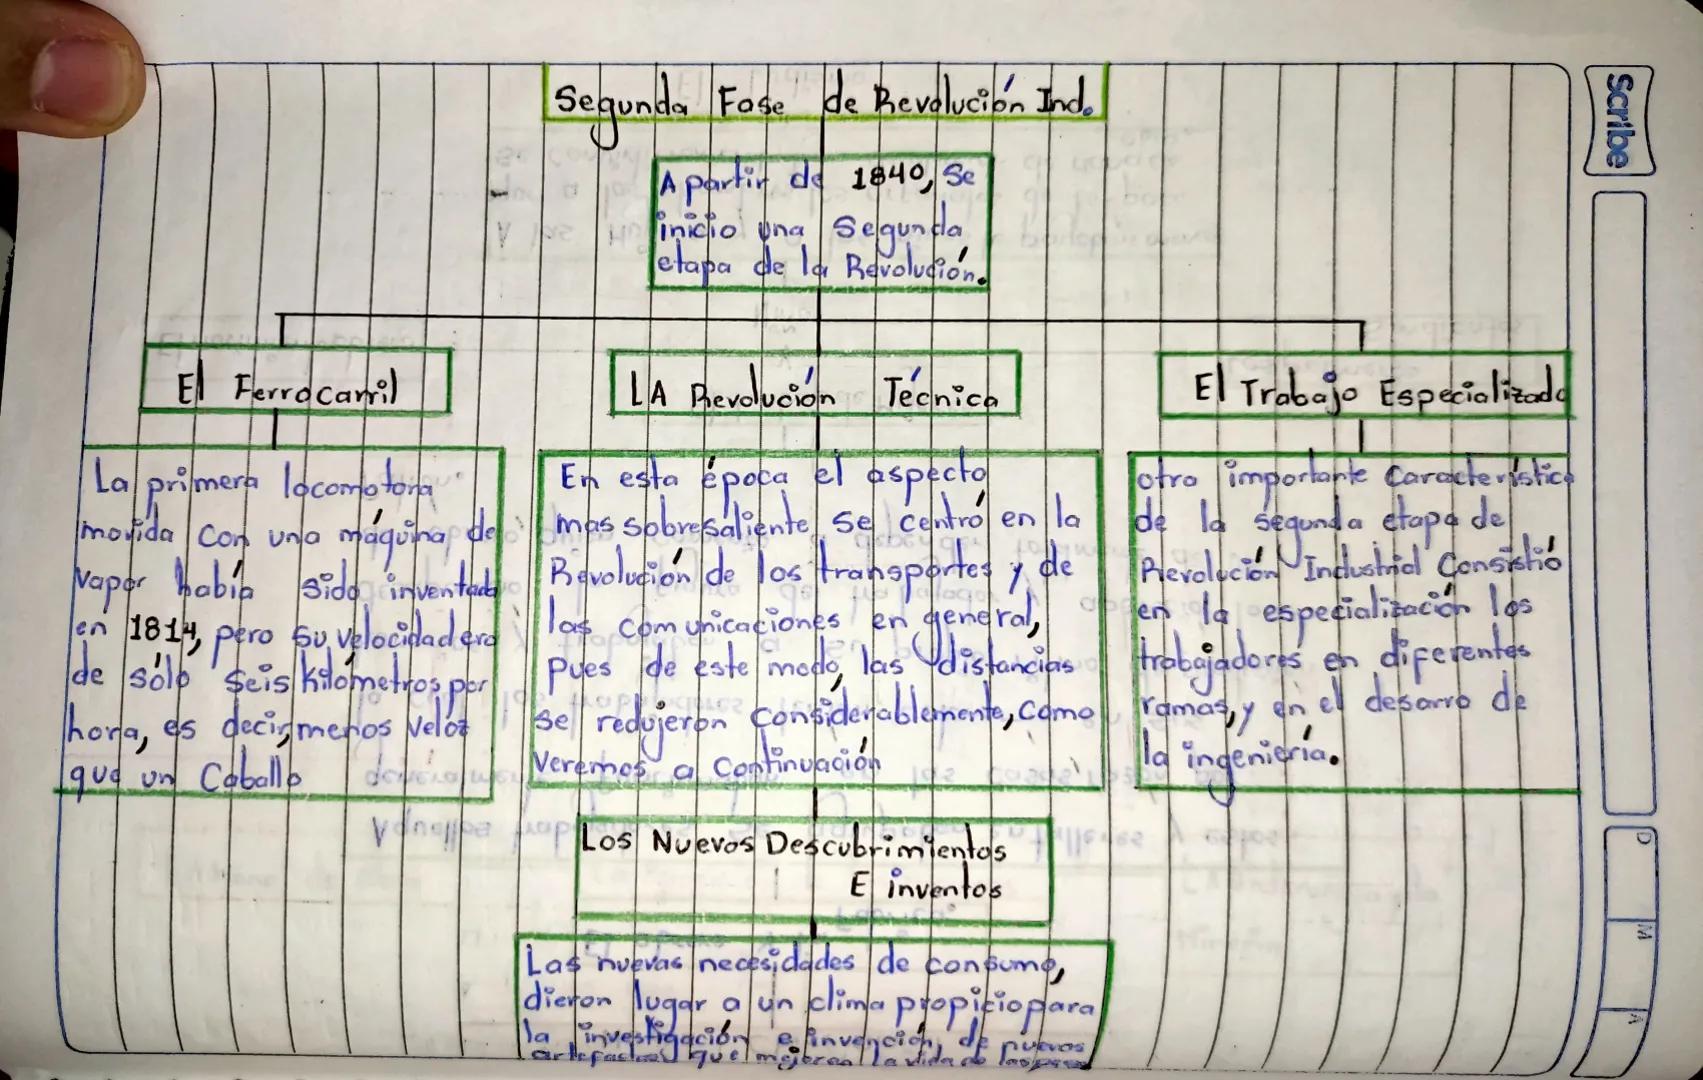 Segunda Fase de Revolución Ind.
A partir de 1840, Se
inicio una Segunda
etapa de la Revolución.
El Ferrocarril
La primera locomotora
movida con una máquina de
vapor había sido inventada
en 1814, pero su velocidad era
de sólo seis kilómetros por
hora, es decir, menos veloz
que un Caballo
LA Revolución Técnica
En esta época el aspecto
mas sobresaliente se centró en la
Revolución de los transportes y de
las comunicaciones en general,
pues de este modo, las distancias
se redujeron considerablemente, como
veremos a continuación
El Trabajo Especializado
otra importante Característica
de la segunda etapa de
Revolución Industrial Consistió
en la especialización los
trabajadores en diferentes
ramas, y en el desarro de
la ingeniería.
Los Nuevos Descubrimientos
E inventos
Las nuevas necesidades de consumo,
dieron lugar a un clima propicio para
la investigación e invención, de nuevos
artefactos que mejoren la vida de las
Scribe
D
M
A